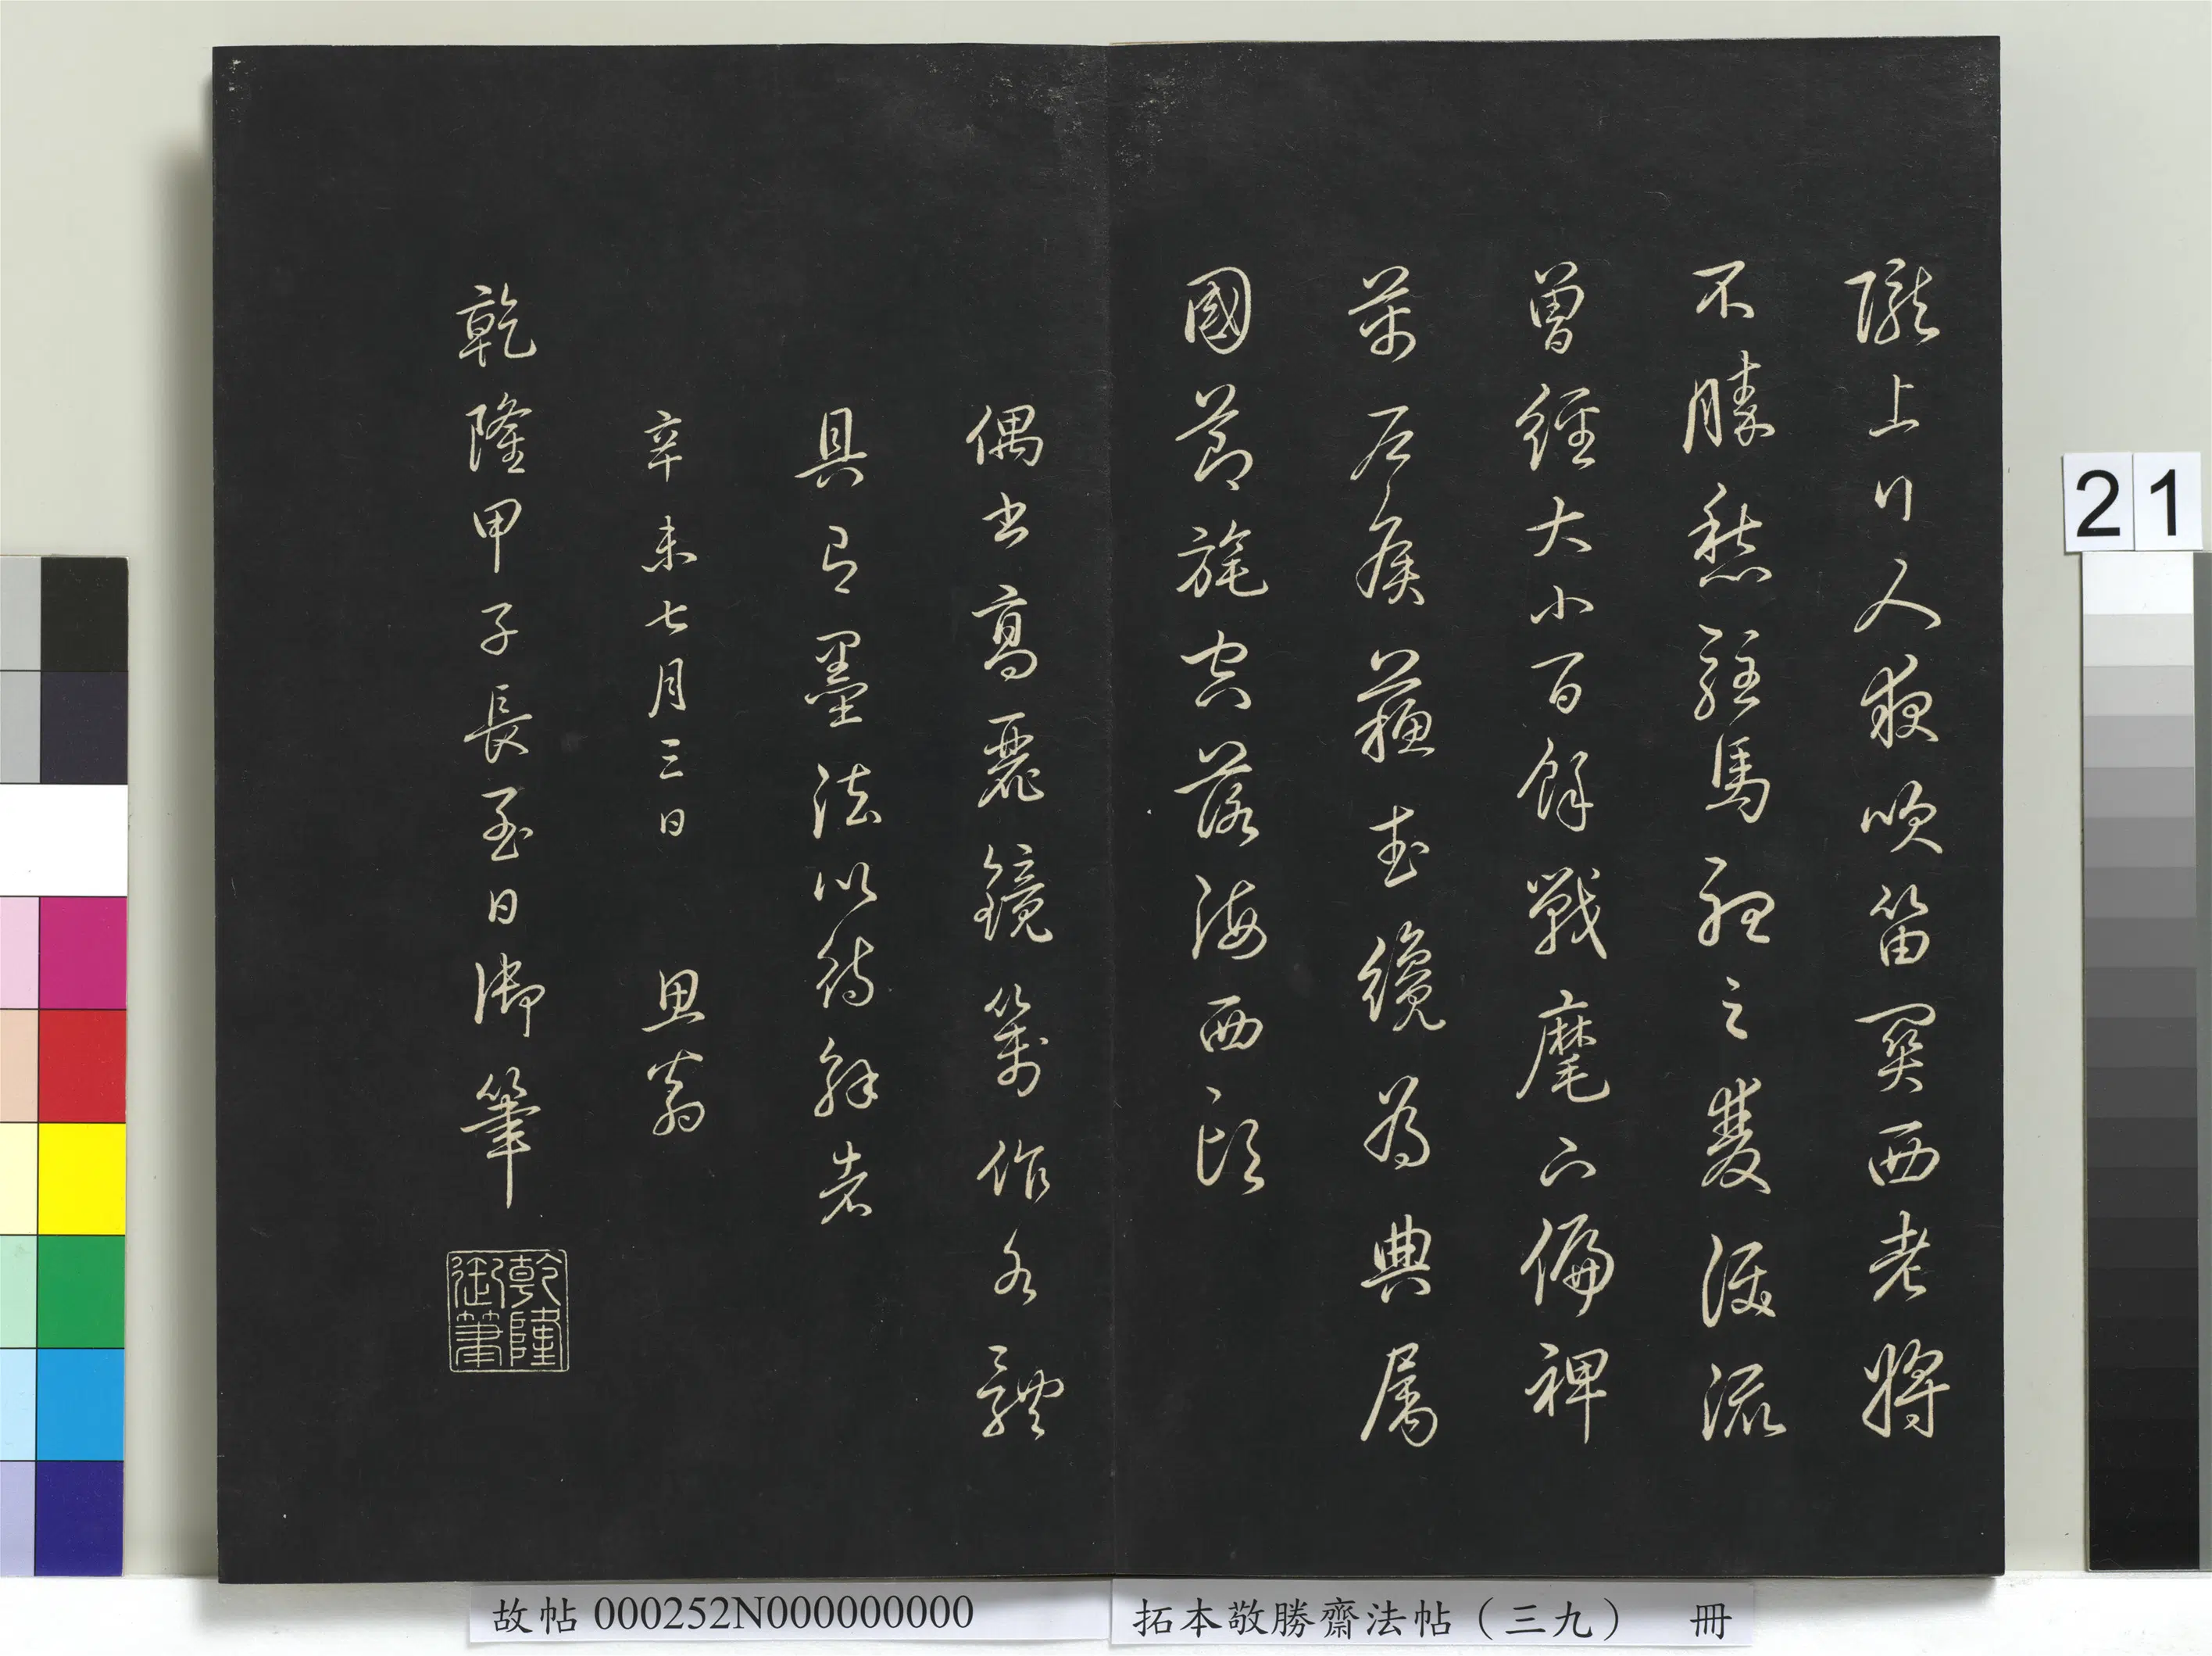 隴上行人夜吹笛關西老將
不勝愁駐馬聽之雙淚流
曾經大小百餘戰麾下偏裨
萬戶侯蘇武纔為典屬
國節旄空落海西頭
偶書高麗鏡箋作各體
具有墨法以待解者
辛未七月三日 思翁
乾隆甲子長至日御筆
乾隆
御筆
21
故帖 000252N000000000
拓本敬勝齋法帖（三九） 冊